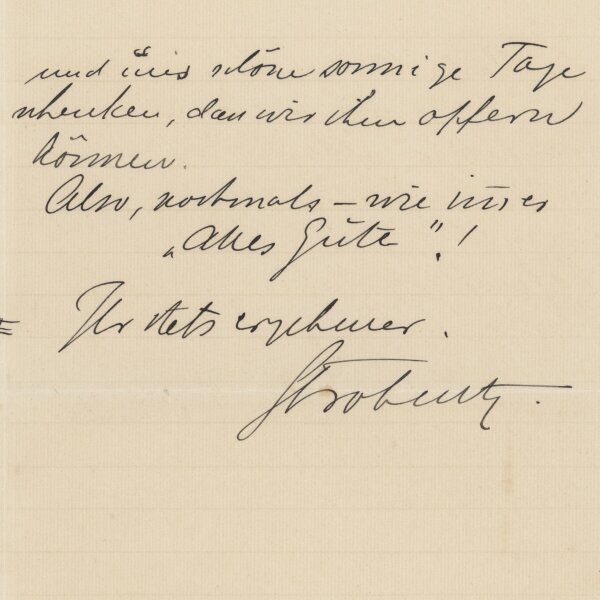 und uns schöne sonnige Tage
schenken, dass wir ihm opfern
können.
Also, nochmals – wie immer
„Alles Gute“!
Ihr stets ergebener.